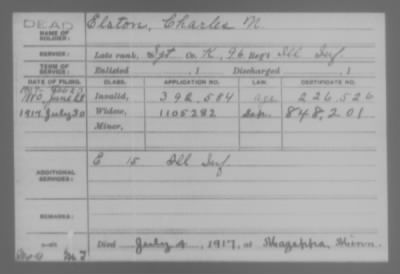 DEAD
NAME OF SOLDIER: Elston, Charles N.
SERVICE: Late rank, Sgt Co. K, 96 Reg't Ill Inf.
TERM OF SERVICE: Enlisted , 1 Discharged , 1
DATE OF FILING. CLASS. APPLICATION NO. LAW. CERTIFICATE NO.
1880, June 28 Invalid, 392,584 age 226,526
1917 July 30 Widow, 1105282 848,201
Minor,
ADDITIONAL SERVICES: E 15 Ill Inf
REMARKS:
Died July 4, 1917, at Minn.